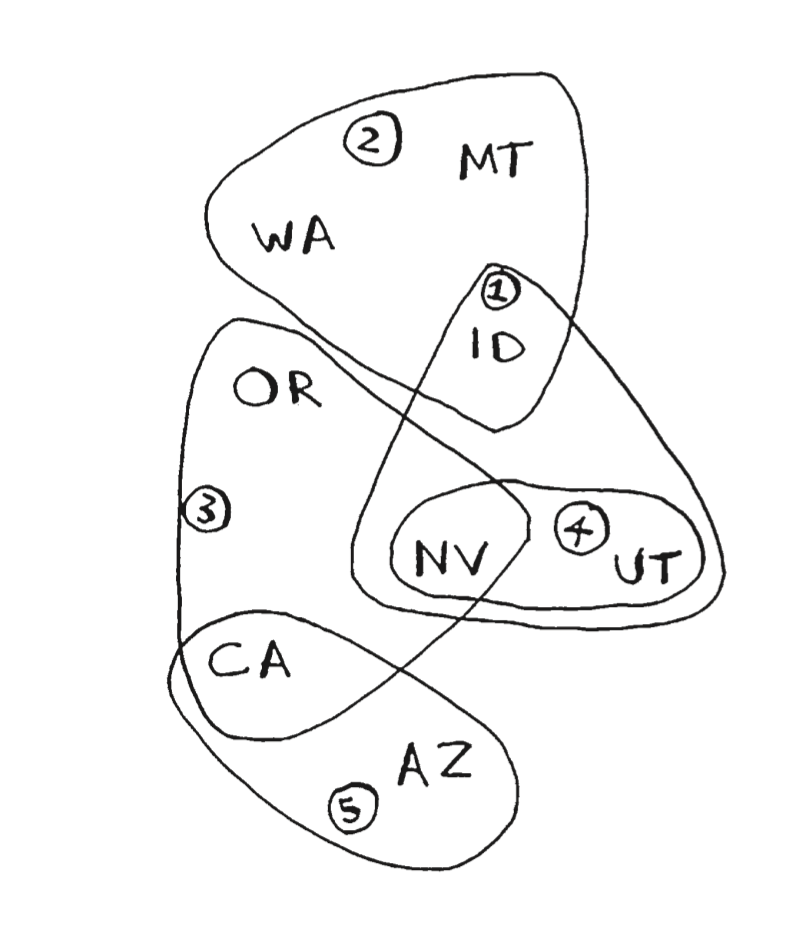 2
MT
WA
1
ID
OR
3
4
NV
UT
CA
AZ
5